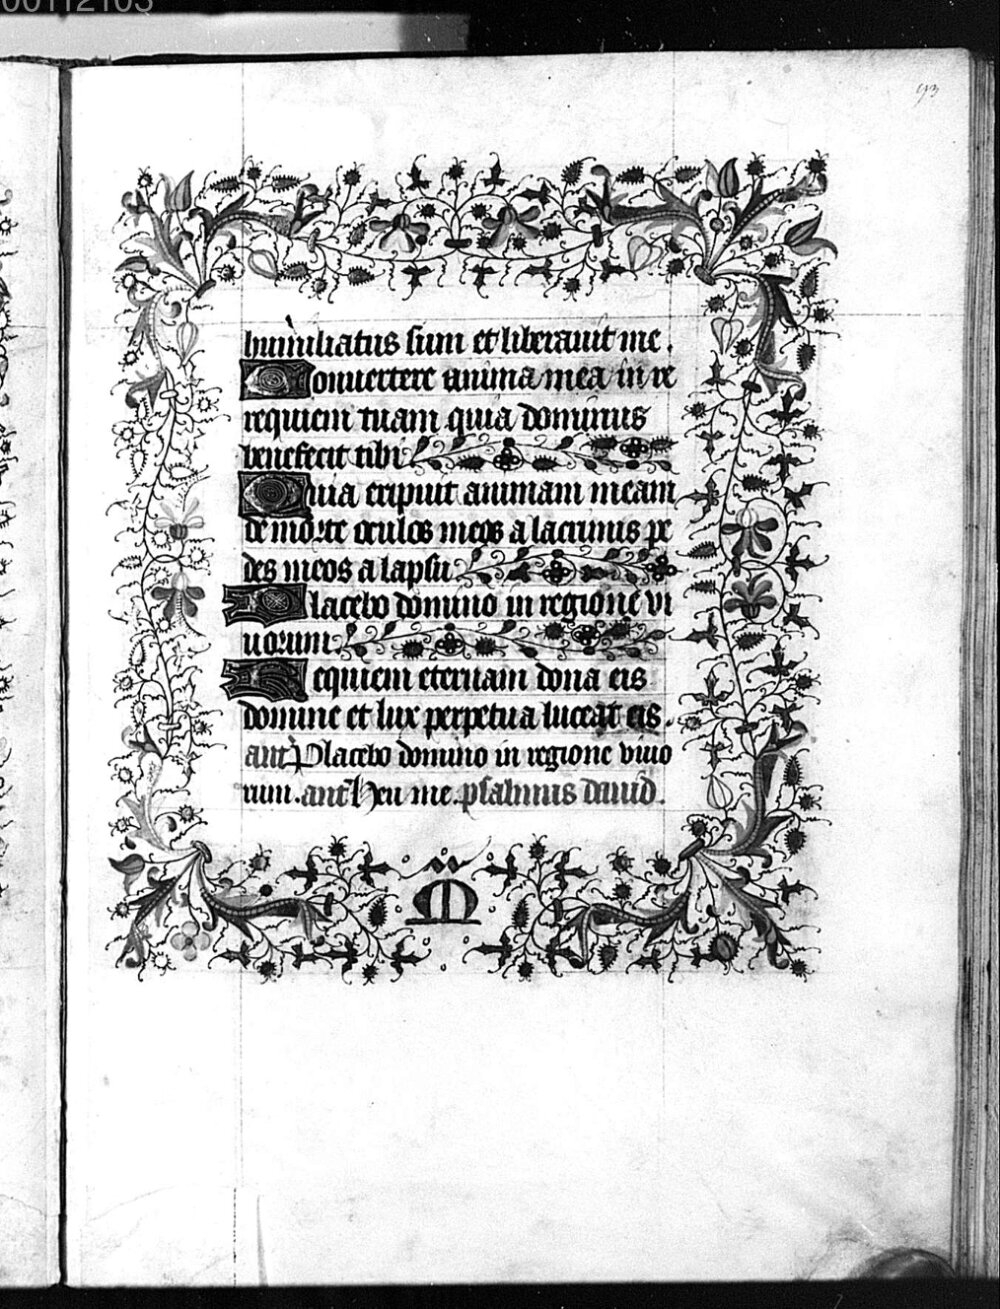 00112103
93
humiliatus sum et liberauit me.
Conuertere anima mea in re
requiem tuam quia dominus
benefecit tibi
Quia eripuit animam meam
de morte oculos meos a lacrimis pe
des meos a lapsu
Placebo domino in regione vi
uorum.
Requiem eternam dona eis
domine et lux perpetua luceat eis.
ant Placebo domino in regione viuo
rum. ant Heu me. psalmus dauid.
M